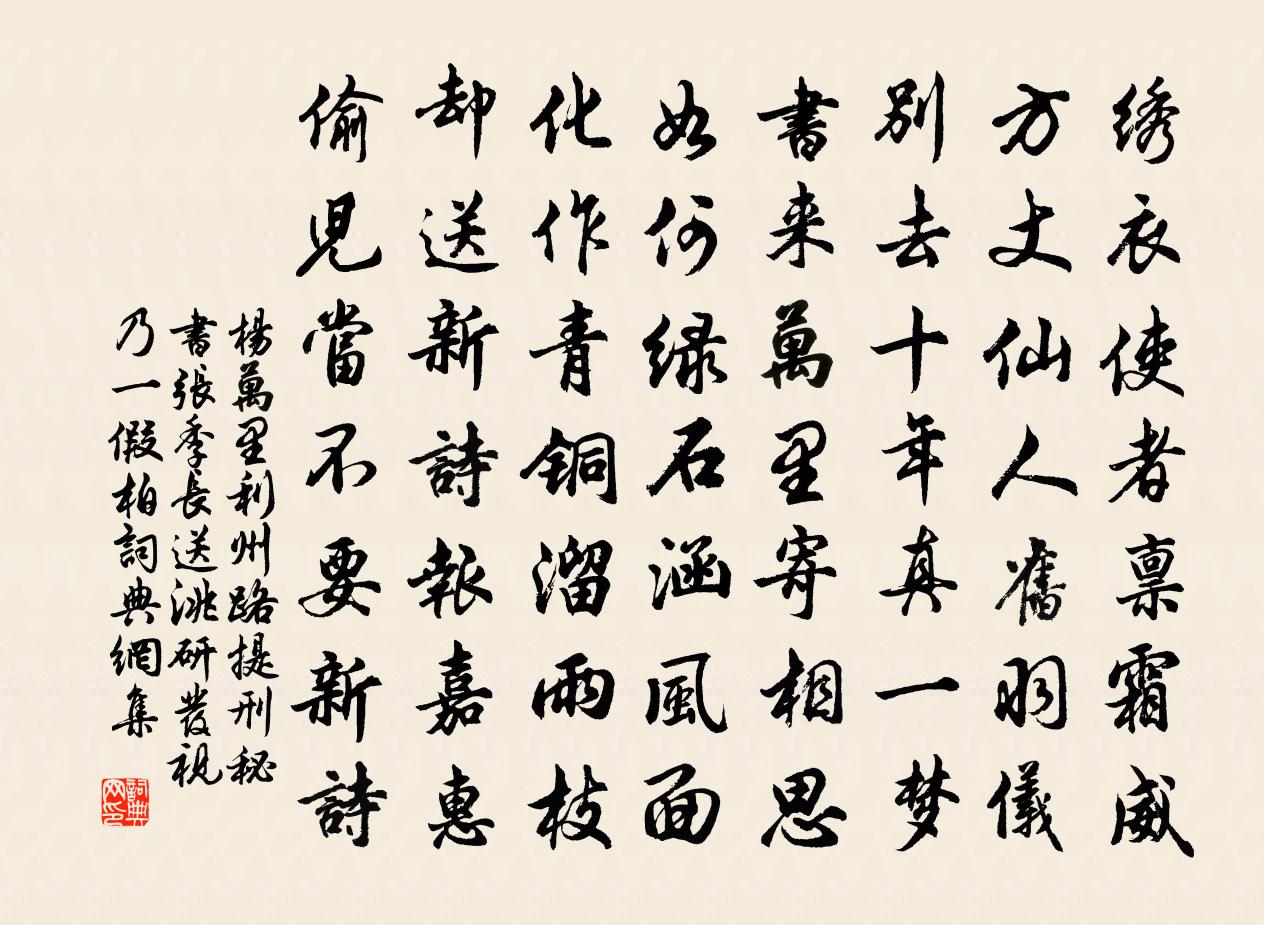 绣衣使者禀霜威
方丈仙人旧羽儀
別去十年真一梦
書来萬里寄相思
如何绿石涵風面
化作青铜溜雨枝
却送新詩報嘉惠
偷児當不要新詩
楊萬里利州路提刑秘
書張季長送洮研發視
乃一假柏詞典網集
詞典
网印